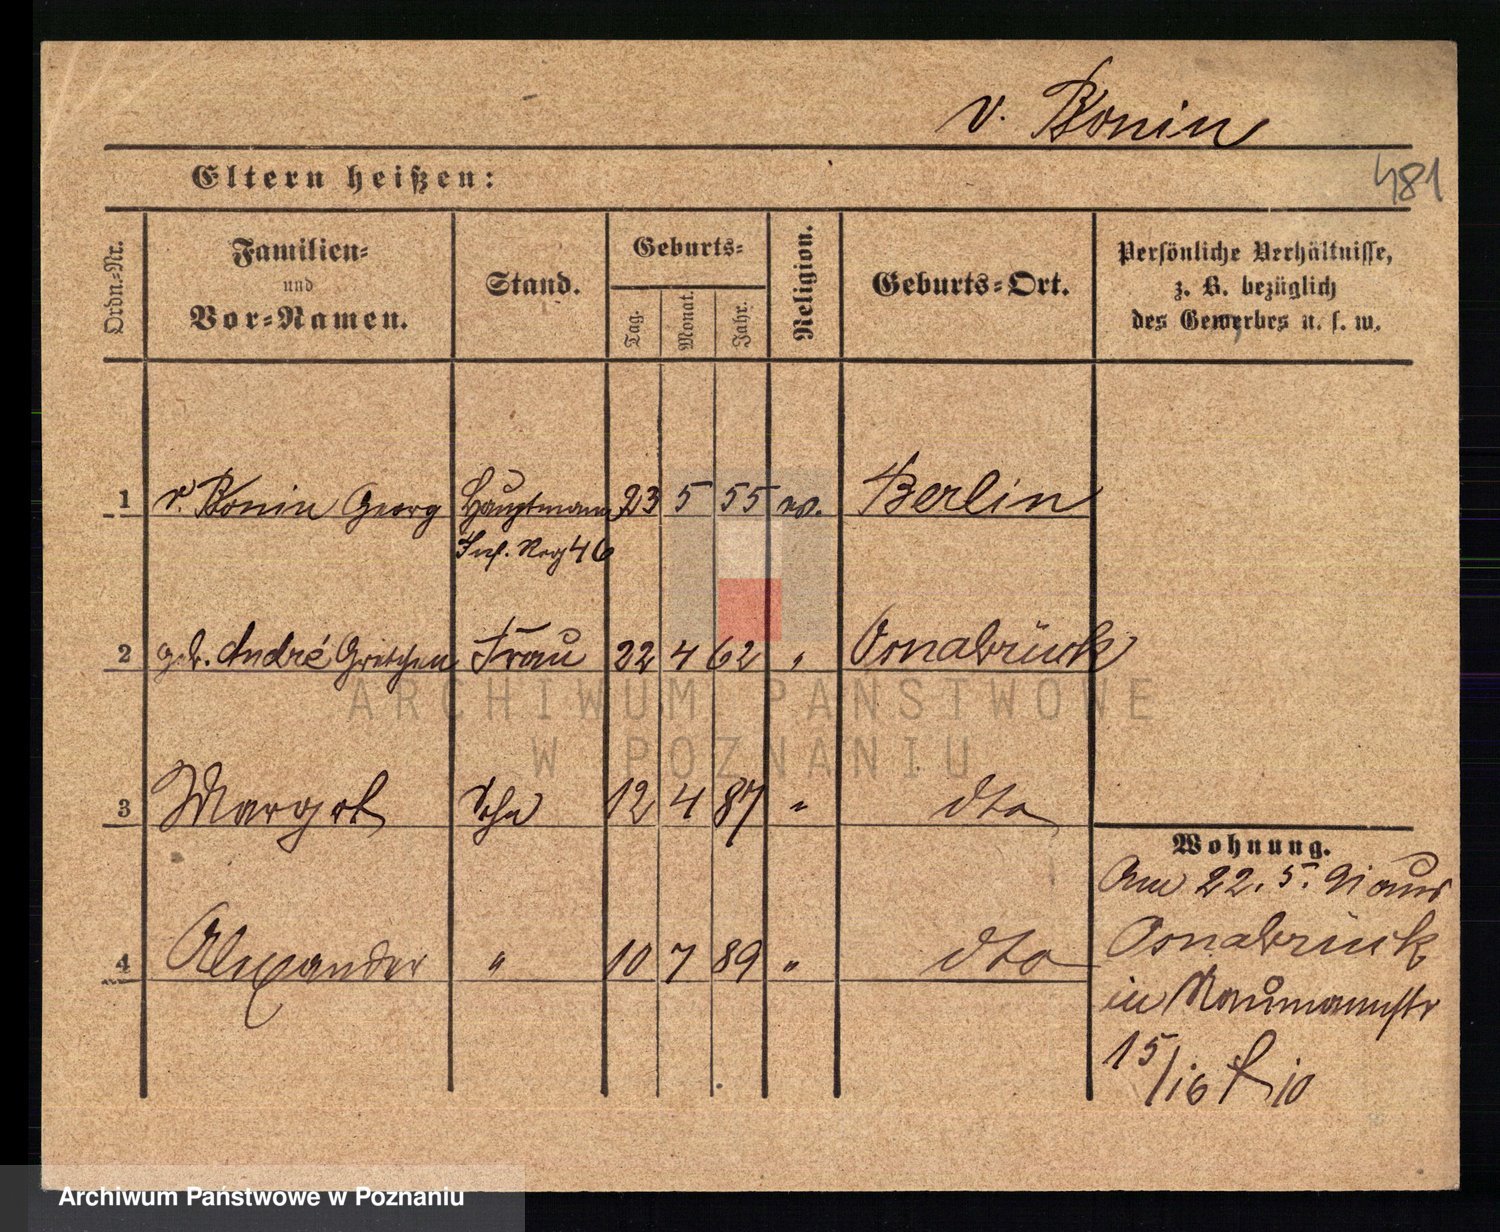 v. Bonin
481
Eltern heißen:
Ordn.-Nr.
Familien-
und
Vor-Namen.
Stand.
Geburts-
Tag.
Monat.
Jahr.
Religion.
Geburts-Ort.
Persönliche Verhältnisse,
z. B. bezüglich
des Gewerbes u. s. w.
1 v. Bonin Georg Hauptmann 23 5 55 ev. Berlin
Inf. Reg 46
2 geb. André Gretchen Frau 22 4 62 " Osnabrück
3 Margot 12 4 87 " dto
4 Alexander " 10 7 89 " dto
Wohnung.
Am 22. 5. 91 aus
Osnabrück
in Naumannstr
15/16
ARCHIWUM PAŃSTWOWE
W POZNANIU
Archiwum Państwowe w Poznaniu